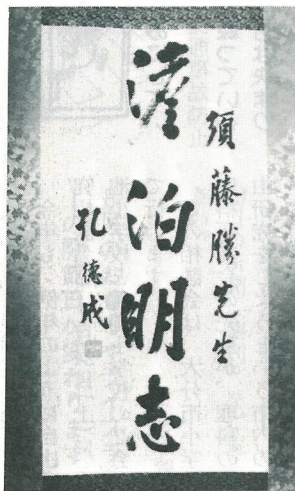 須藤勝先生
澹泊明志
孔德成